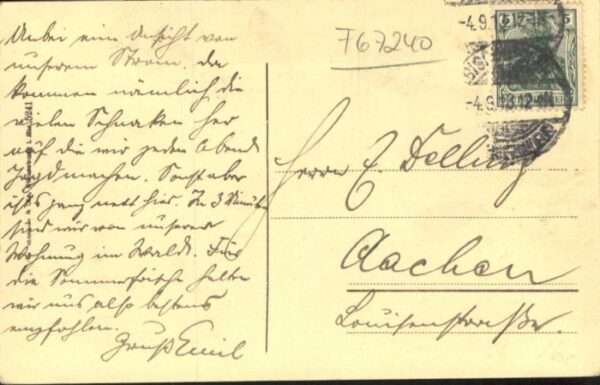 Anbei eine Ansicht von
unserem Strom. Da
kommen nämlich die
vielen Schnaken her
auf die wir jeden Abend
Jagd machen. Sonst aber
ists ganz nett hier. In 3 Minuten
sind wir von unserer
Wohnung im Wald. Für
die Sommerfrische halten
wir uns also bestens
empfohlen.
Gruß Emil
767240
-4.9.13.12-1N
5 5
-4.9.13.12-1N
Herrn E. Delling
Aachen
Louisenstraße.